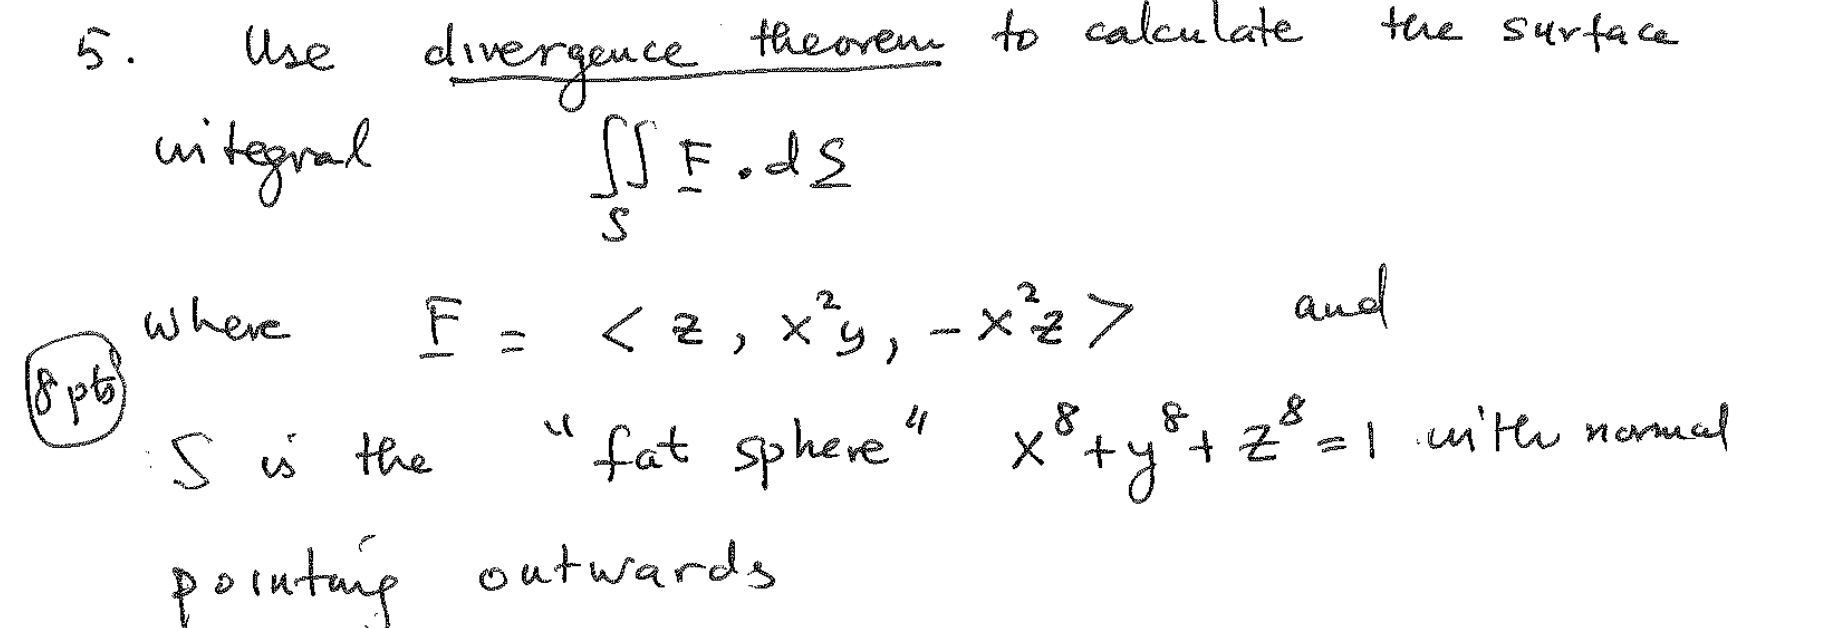 5. Use divergence theorem to calculate the surface
integral ∬_S F · dS
where F = < z, x²y, -x²z > and
8 pts
S is the "fat sphere" x⁸ + y⁸ + z⁸ = 1 with normal
pointing outwards